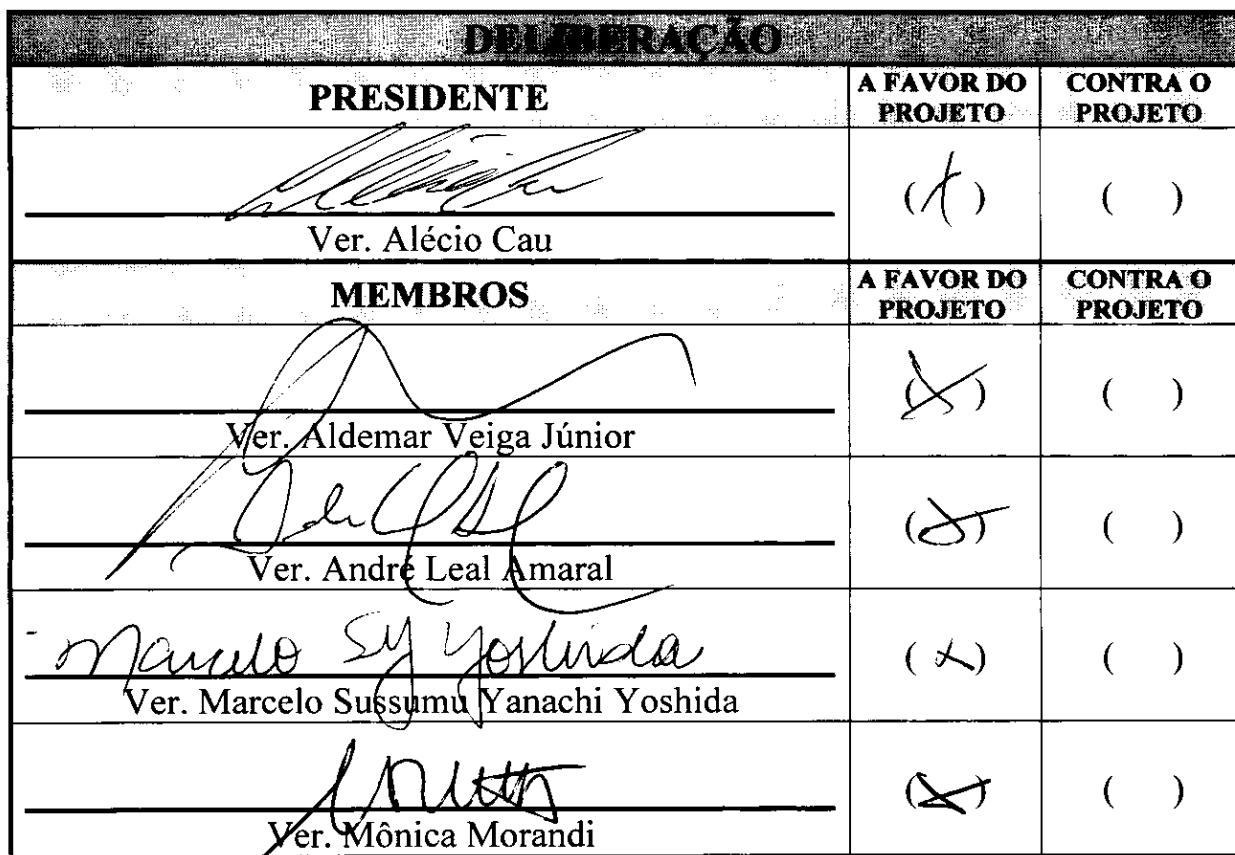 DELIBERAÇÃO
PRESIDENTE A FAVOR DO PROJETO CONTRA O PROJETO
(X) ( )
Ver. Alécio Cau
MEMBROS A FAVOR DO PROJETO CONTRA O PROJETO
(X) ( )
Ver. Aldemar Veiga Júnior
(X) ( )
Ver. André Leal Amaral
Marcelo SY Yoshida (X) ( )
Ver. Marcelo Sussumu Yanachi Yoshida
(X) ( )
Ver. Mônica Morandi